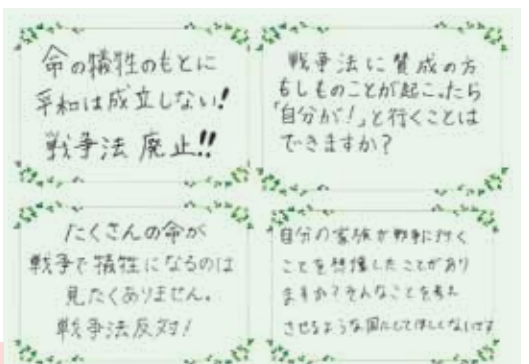 命の犠牲のもとに
平和は成立しない!
戦争法 廃止!!
戦争法に賛成の方
もしものことが起こったら
「自分が!」と行くことは
できますか?
たくさんの命が
戦争で犠牲になるのは
見たくありません。
戦争法反対!
自分の家族が戦争に行く
ことを想像したことがあり
ますか?そんなことを考え
させるような国にしてほしくないです